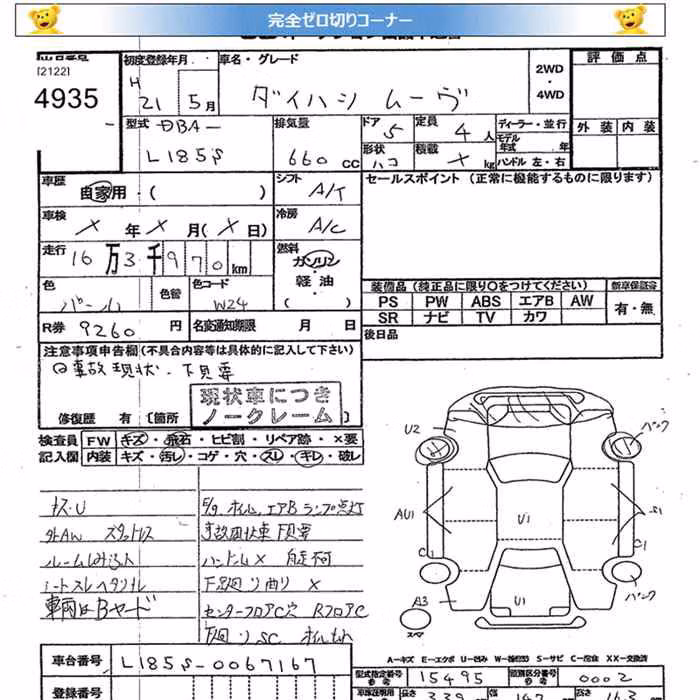 完全ゼロ切りコーナー
出品番号
[2122]
4935
初度登録年月 H 21 5月
車名・グレード
ダイハツ ムーヴ
2WD・4WD
評価点
外装 内装
型式 DBA-
L185S
排気量 660 cc
ドア 5
定員 4人
形状 ハコ
積載 × kg
ディーラー・並行
モデル年式 年
ハンドル 左・右
車歴 自家用・( )
シフト A/T
セールスポイント (正常に機能するものに限ります)
車検 × 年 × 月 (× 日)
冷房 A/C
走行 16万3千970km
燃料 ガソリン 軽油 ( )
色 パール
色替
色コード W24
装備品 (純正品に限り○をつけてください)
新車保証書
PS PW ABS エアB AW
SR ナビ TV カワ
有・無
R券 9260 円
名変通知期限 月 日
後日品
注意事項申告欄 (不具合内容等は具体的に記入して下さい)
事故現状・下見要
現状車につき
ノークレーム
修復歴 有 [箇所
検査員記入欄
FW キズ・飛石・ヒビ割・リペア跡・×要
内装 キズ・汚レ・コゲ・穴・スレ・キレ・破レ
キズ・U
外AW スタットレス
ルームシミ
シートスレヘタリ
車両はBヤード
E/g、オイル、エアBランプ点灯
事故現状車下見要
ハンドル× 自走不可
下廻り曲り ×
センターフロアC穴 RフロアC
下廻りSC オイルもれ
U2
パンク
AU1
U1
S1
C1
C1
A3
U1
パンク
スペア
A-キズ E-エクボ U-凹み W-補修跡 S-サビ C-腐食 XX-交換済
車台番号 L185S-0067167
型式指定番号 15495
類別区分番号 0002
登録番号
長さ 339
幅 147
高さ 163